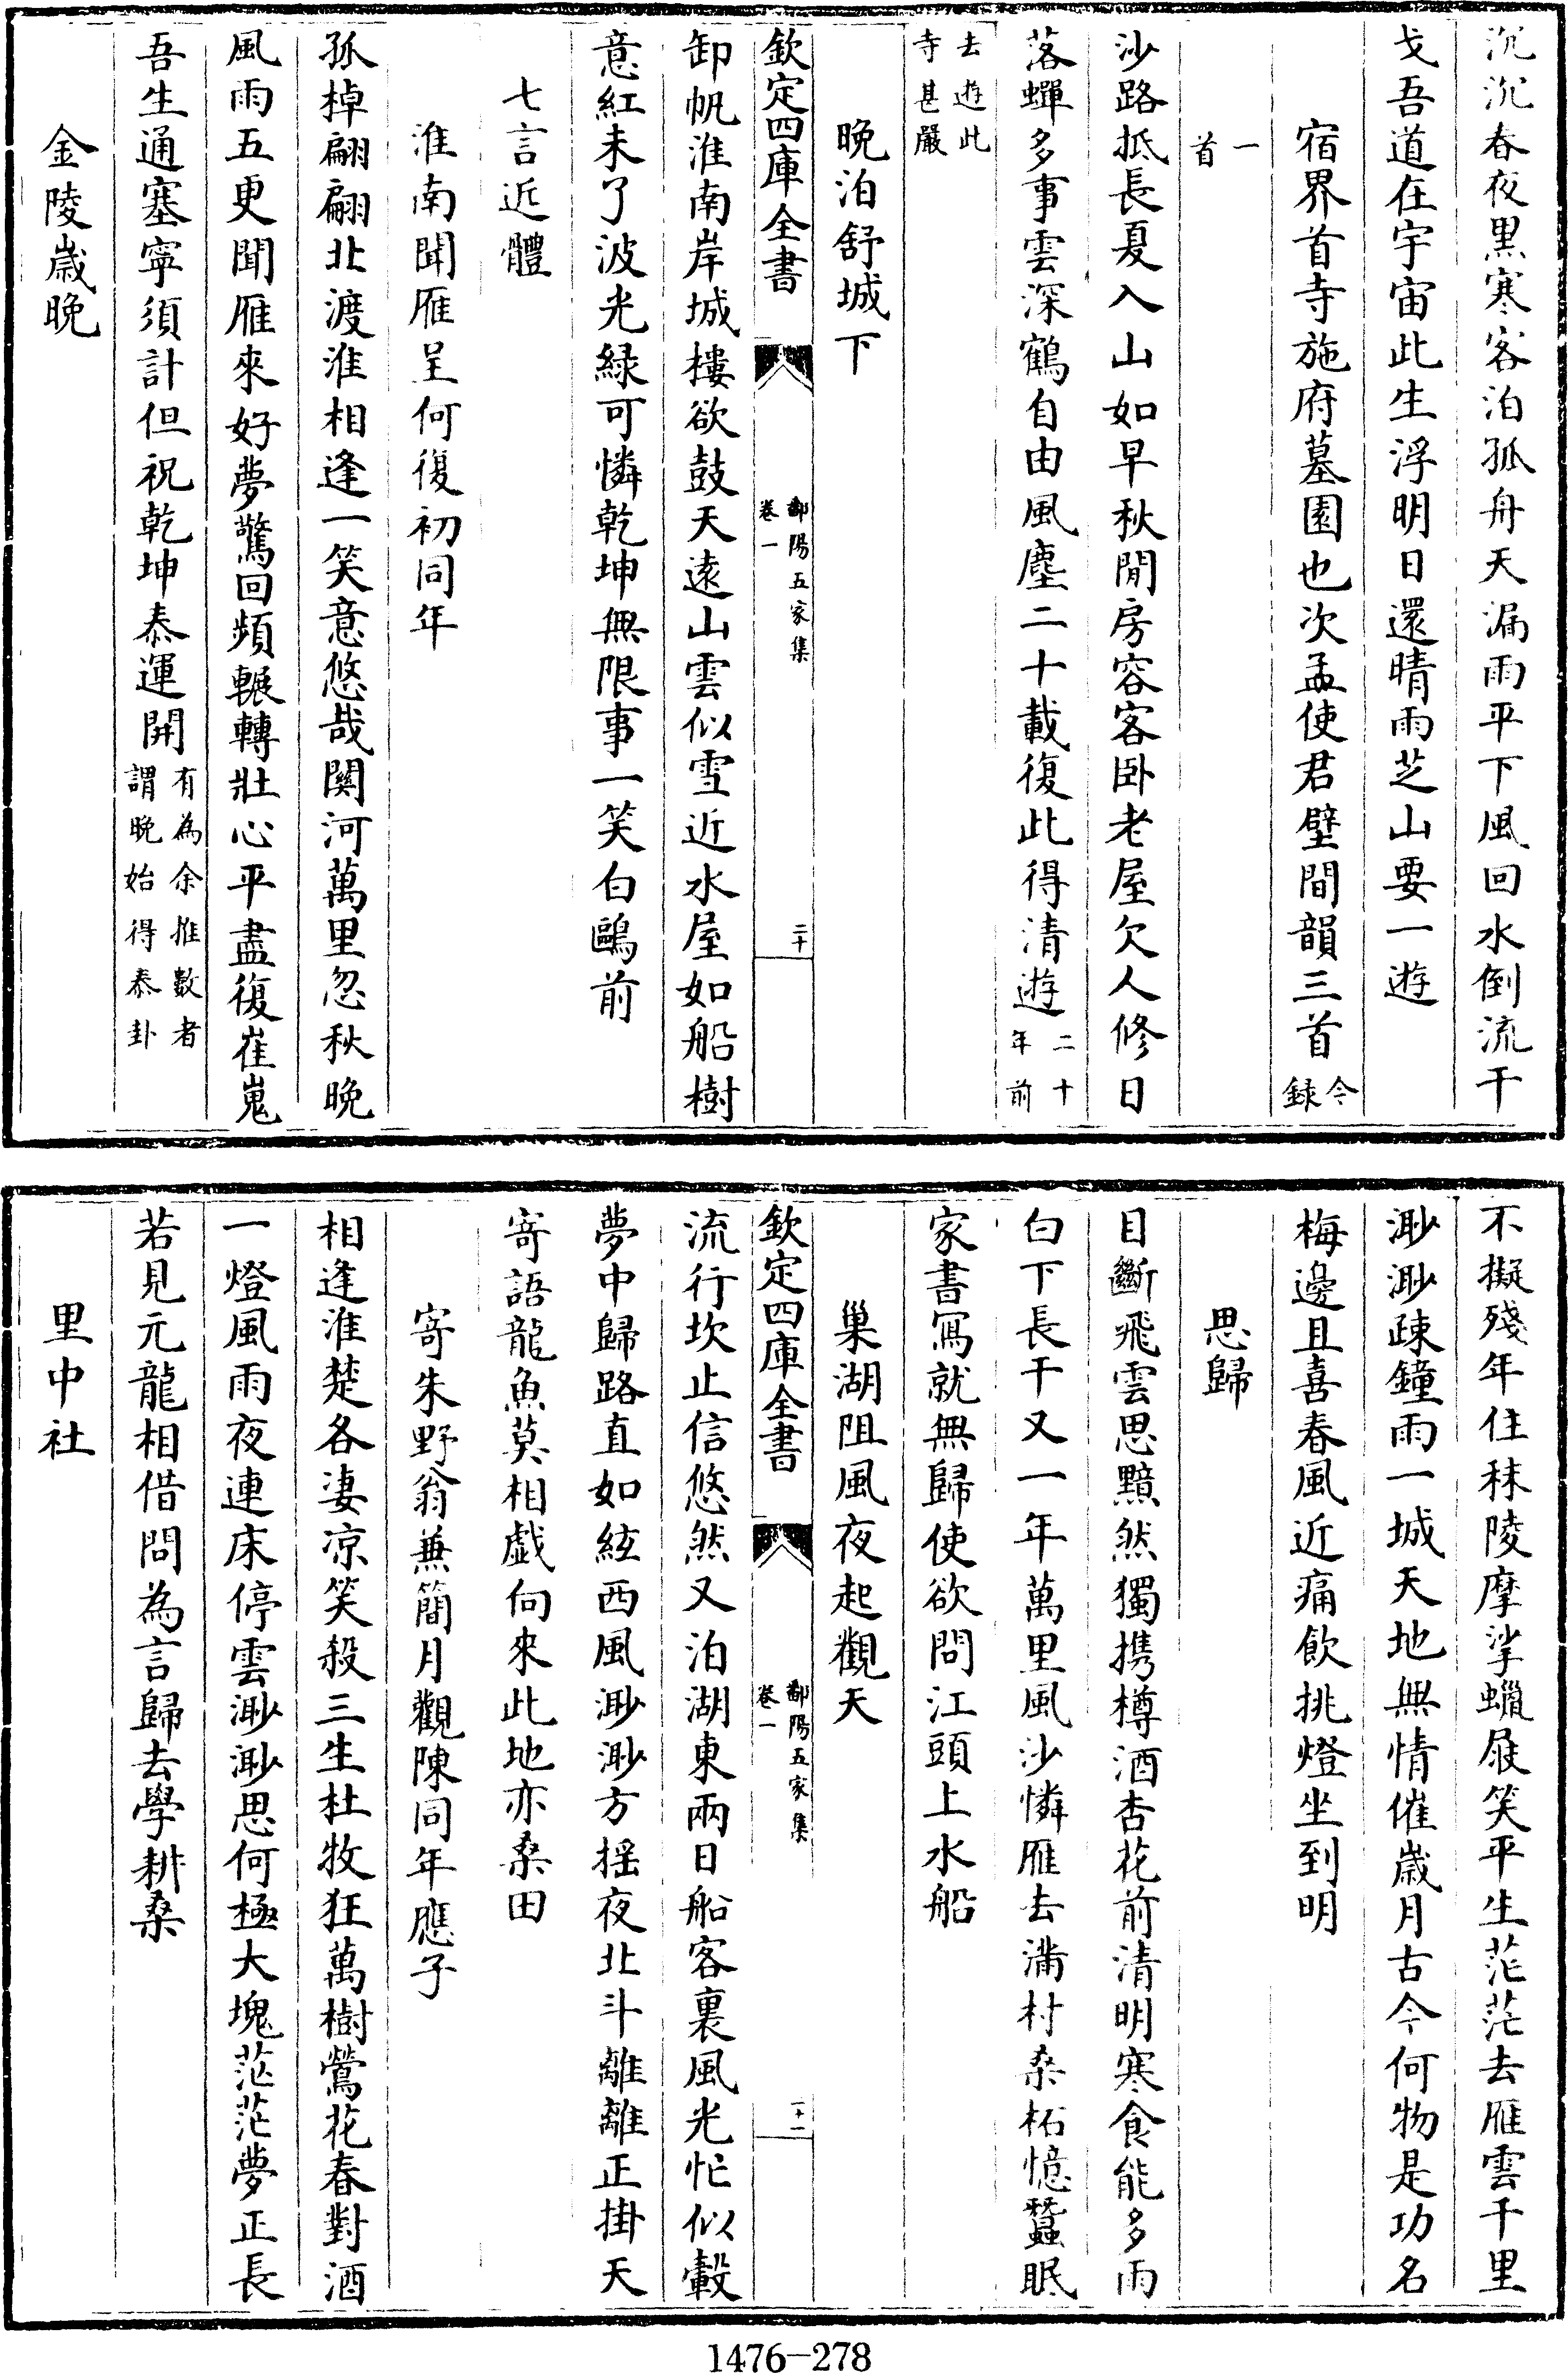 沉沉春夜黑寒客泊孤舟天漏雨平下風回水倒流干
戈吾道在宇宙此生浮明日還晴雨芝山要一遊
宿界首寺施府墓園也次孟使君壁間韻三首今録
一首
沙路抵長夏入山如早秋閒房容客卧老屋欠人修日
落蟬多事雲深鶴自由風塵二十載復此得清遊二十年前
去遊此寺甚嚴
晚泊舒城下
欽定四庫全書
鄱陽五家集
卷一
二十
卸帆淮南岸城樓欲鼓天遠山雲似雪近水屋如船樹
意紅未了波光綠可憐乾坤無限事一笑白鷗前
七言近體
淮南聞雁呈何復初同年
孤棹翩翩北渡淮相逢一笑意悠哉關河萬里忽秋晚
風雨五更聞雁來好夢驚回頻輾轉壯心平盡復崔嵬
吾生通塞寧須計但祝乾坤泰運開有為余推數者謂晚始得泰卦
金陵歲晚
不擬殘年住秣陵摩挲蠟屐笑平生茫茫去雁雲千里
渺渺疎鐘雨一城天地無情催歲月古今何物是功名
梅邊且喜春風近痛飲挑燈坐到明
思歸
目斷飛雲思黯然獨攜樽酒杏花前清明寒食能多雨
白下長干又一年萬里風沙憐雁去滿村桑柘憶蠶眠
家書寫就無歸使欲問江頭上水船
巢湖阻風夜起觀天
欽定四庫全書
鄱陽五家集
卷一
二十一
流行坎止信悠然又泊湖東兩日船客裏風光忙似轂
夢中歸路直如絃西風渺渺方搖夜北斗離離正掛天
寄語龍魚莫相戲向來此地亦桑田
寄朱野翁兼簡月觀陳同年應子
相逢淮楚各凄凉笑殺三生杜牧狂萬樹鶯花春對酒
一燈風雨夜連床停雲渺渺思何極大塊茫茫夢正長
若見元龍相借問為言歸去學耕桑
里中社
1476-278